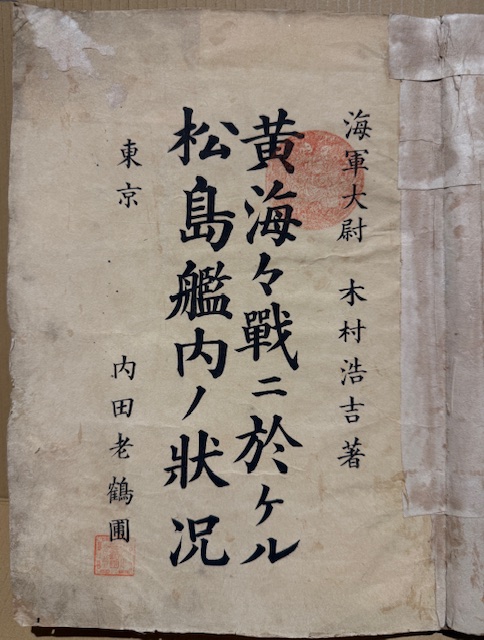 海軍大尉 木村浩吉著
黄海々戰ニ於ケル
松島艦内ノ狀況
東京 内田老鶴圃